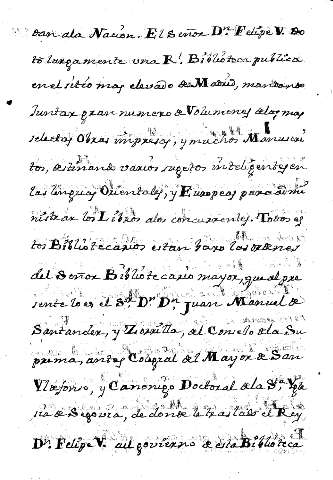 dan ala Nacion. El Señor Dn. Felipe V. do
tò largamente una Rl. Biblioteca publica
en el sitio mas elevado de Madrid, mandando
Juntar gran numero de Volumenes de las mas
selectas Obras impresas, y muchos Manuscri
tos, destinando varios sugetos inteligentes en
las linguas Orientales, y Europeas para admi
nistrar los Libros alos concurrentes. Todos es
tos Bibliotecarios estan baxo las ordenes
del Señor Bibliotecario mayor, que al pre
sente lo es el Sr. Dr. Dn. Juan Manuel de
Santander, y Zorrilla, del Consejo de la Su
prema, antes Colegial del Mayor de San
Yldefonso, y Canonigo Doctoral de la Sta. Ygle
sia de Segovia, de donde le traslado el Rey
Dn. Felipe V. al govierno de esta Biblioteca